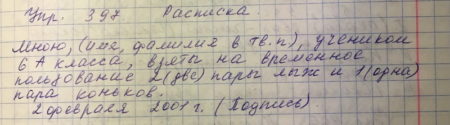 Упр. 397 Расписка.
Мною, (имя, фамилия в тв.п), учеником
6 А класса, взяты на временное
пользование 2(две) пары лыж и 1(одна)
пара коньков.
2 февраля 2001 г. (Подпись).